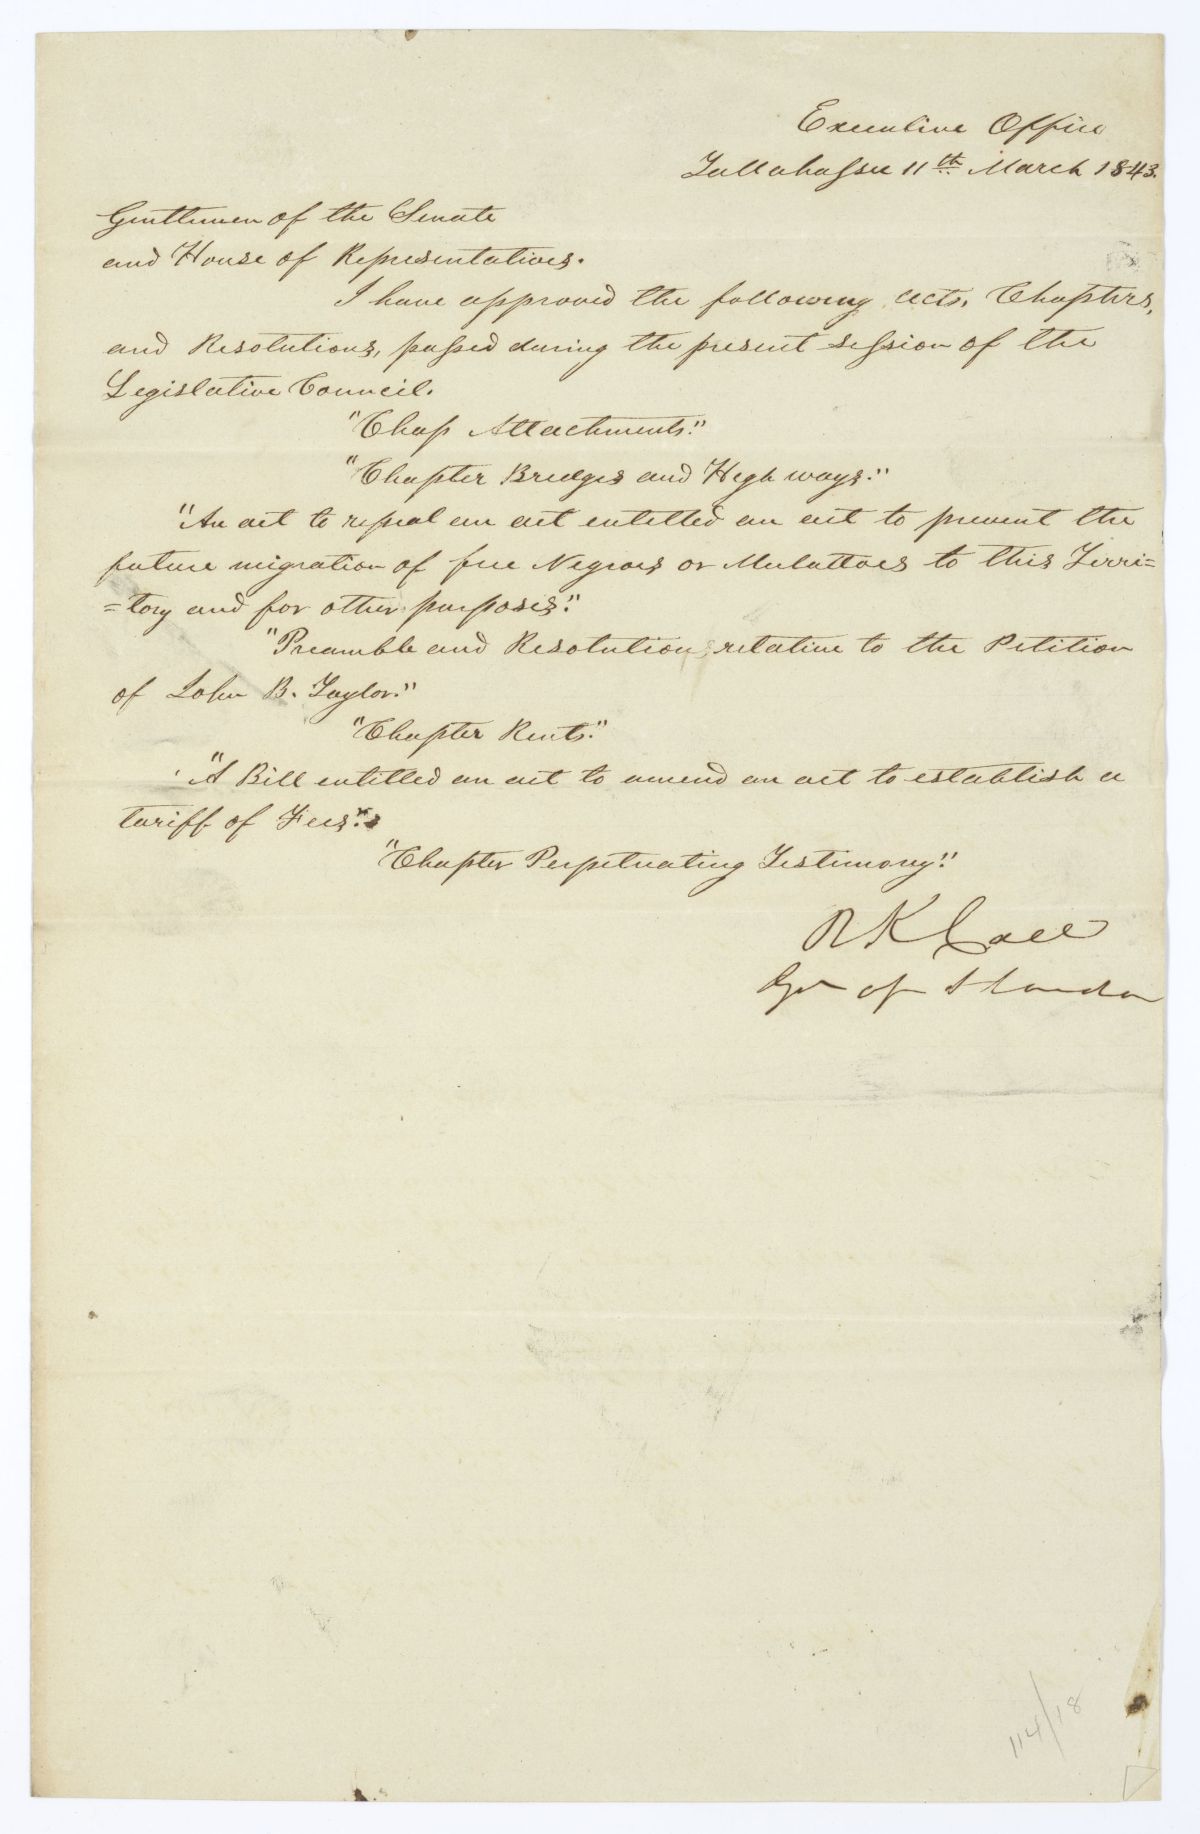 Executive Office
Tallahassee 11th March 1843.
Gentlemen of the Senate
and House of Representatives.
I have approved the following Acts, Chapters,
and Resolutions, passed during the present session of the
Legislative Council.
"Chap Attachments."
"Chapter Bridges and High ways."
"An act to repeal an act entitled an act to prevent the
future migration of free Negroes or Mulattoes to this Terri=
=tory and for other purposes."
"Preamble and Resolution relative to the Petition
of John B. Taylor."
"Chapter Rents."
"A Bill entitled an act to amend an act to establish a
tariff of Fees."
"Chapter Perpetuating Testimony."
R K Call
Gov of Florida
114/18